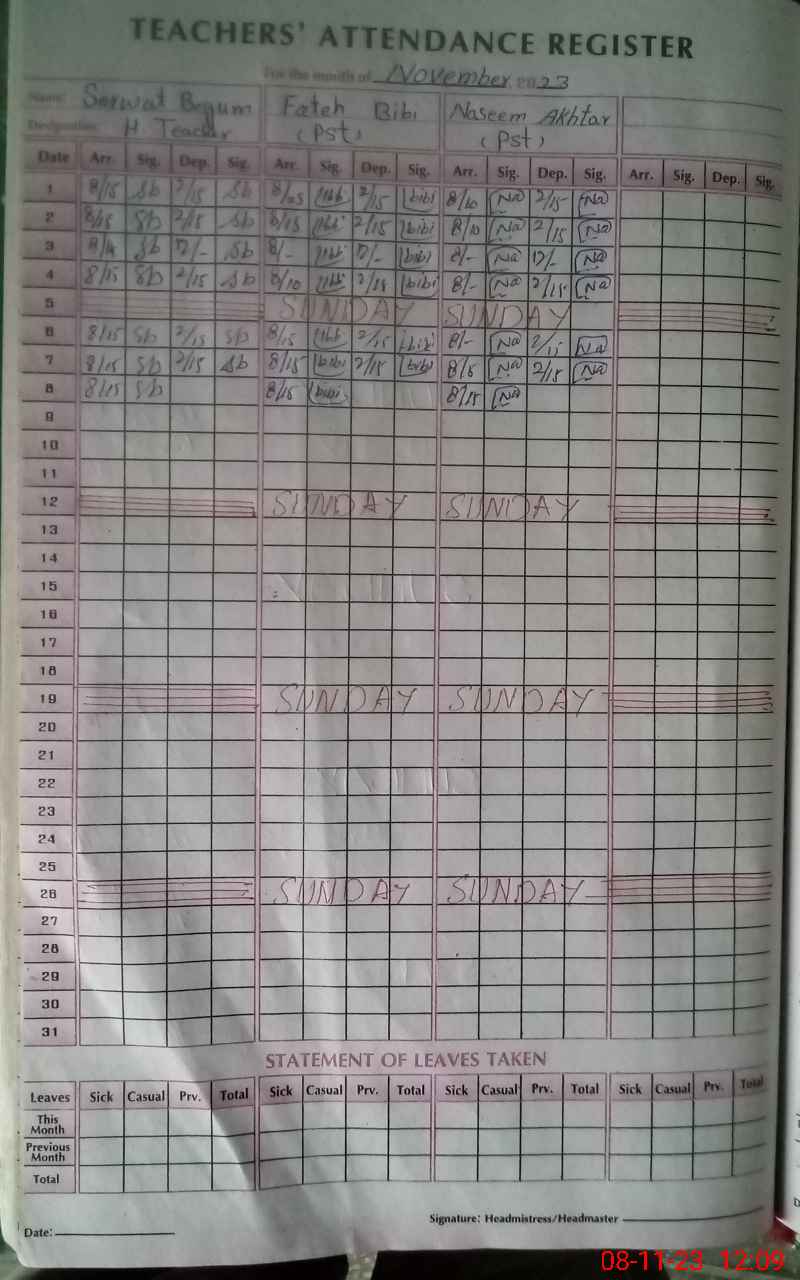 TEACHERS' ATTENDANCE REGISTER
For the month of November 2023
Name: Sarwat Begum Fateh Bibi Naseem Akhtar
Designation: H Teacher (Pst) (Pst)
Date Arr. Sig. Dep. Sig. Arr. Sig. Dep. Sig. Arr. Sig. Dep. Sig. Arr. Sig. Dep. Sig.
1 8/15 Sb 2/15 Sb 8/25 2/15 bibi 8/10 Na 2/15 Na
2 8/15 Sb 2/15 Sb 8/15 2/15 bibi 8/10 Na 2/15 Na
3 Sb 12/- Sb 8/- 12/- bibi 8/- Na 12/- Na
4 8/15 Sb 2/15 Sb 8/10 2/15 bibi 8/- Na 2/15 Na
5 SUNDAY SUNDAY
6 8/15 Sb 2/15 Sb 8/15 2/15 bibi 8/- Na 2/15 Na
7 8/15 Sb 2/15 Sb 8/15 bibi 2/15 bibi 8/15 Na 2/15 Na
8 8/15 Sb 8/15 bibi 8/15 Na
9
10
11
12 SUNDAY SUNDAY
13
14
15
16
17
18
19 SUNDAY SUNDAY
20
21
22
23
24
25
26 SUNDAY SUNDAY
27
28
29
30
31
STATEMENT OF LEAVES TAKEN
Leaves Sick Casual Prv. Total Sick Casual Prv. Total Sick Casual Prv. Total Sick Casual Prv. Total
This Month
Previous Month
Total
Signature: Headmistress/Headmaster
Date:
08-11-23 12:09